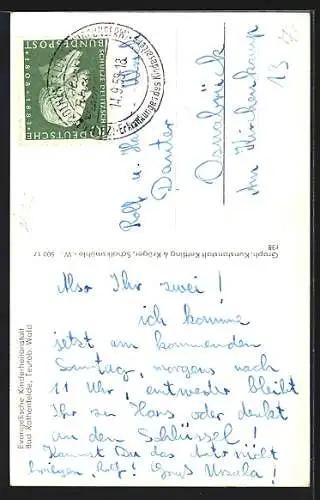 DEUTSCHE
BUNDESPOST
SCHULZE-DELITZSCH
1808-1883
14.9.58-18
Rolf u.
Danter
Osnabrück
Am Kirchenkamp
13
Graph. Kunstanstalt Kettling & Krüger, Schalksmühle - W.
500 17
r38
Evangelische Kinderheilanstalt
Bad Rothenfelde, Teutob. Wald
Also Ihr zwei!
ich komme
jetzt am kommenden
Sonntag, morgens nach
11 Uhr, entweder bleibt
Ihr zu Haus oder denkt
an den Schlüssel!
Kannst Du das Auto nicht
kriegen, Rolf! Gruß Ursula!